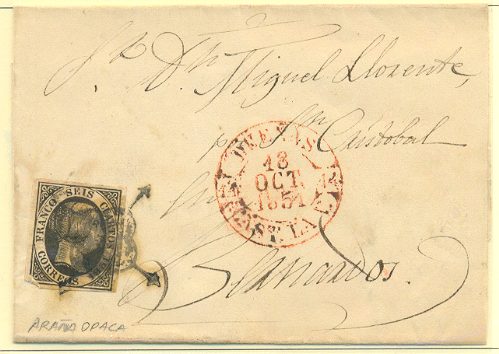 Sr. Dn. Miguel Llorente,
pr Sn Cristobal
DUEÑAS
18
OCT.
1851
CAST. LA V.
FRANCO SEIS CUARTOS
CORREOS
Granados.
ARAÑA OPACA